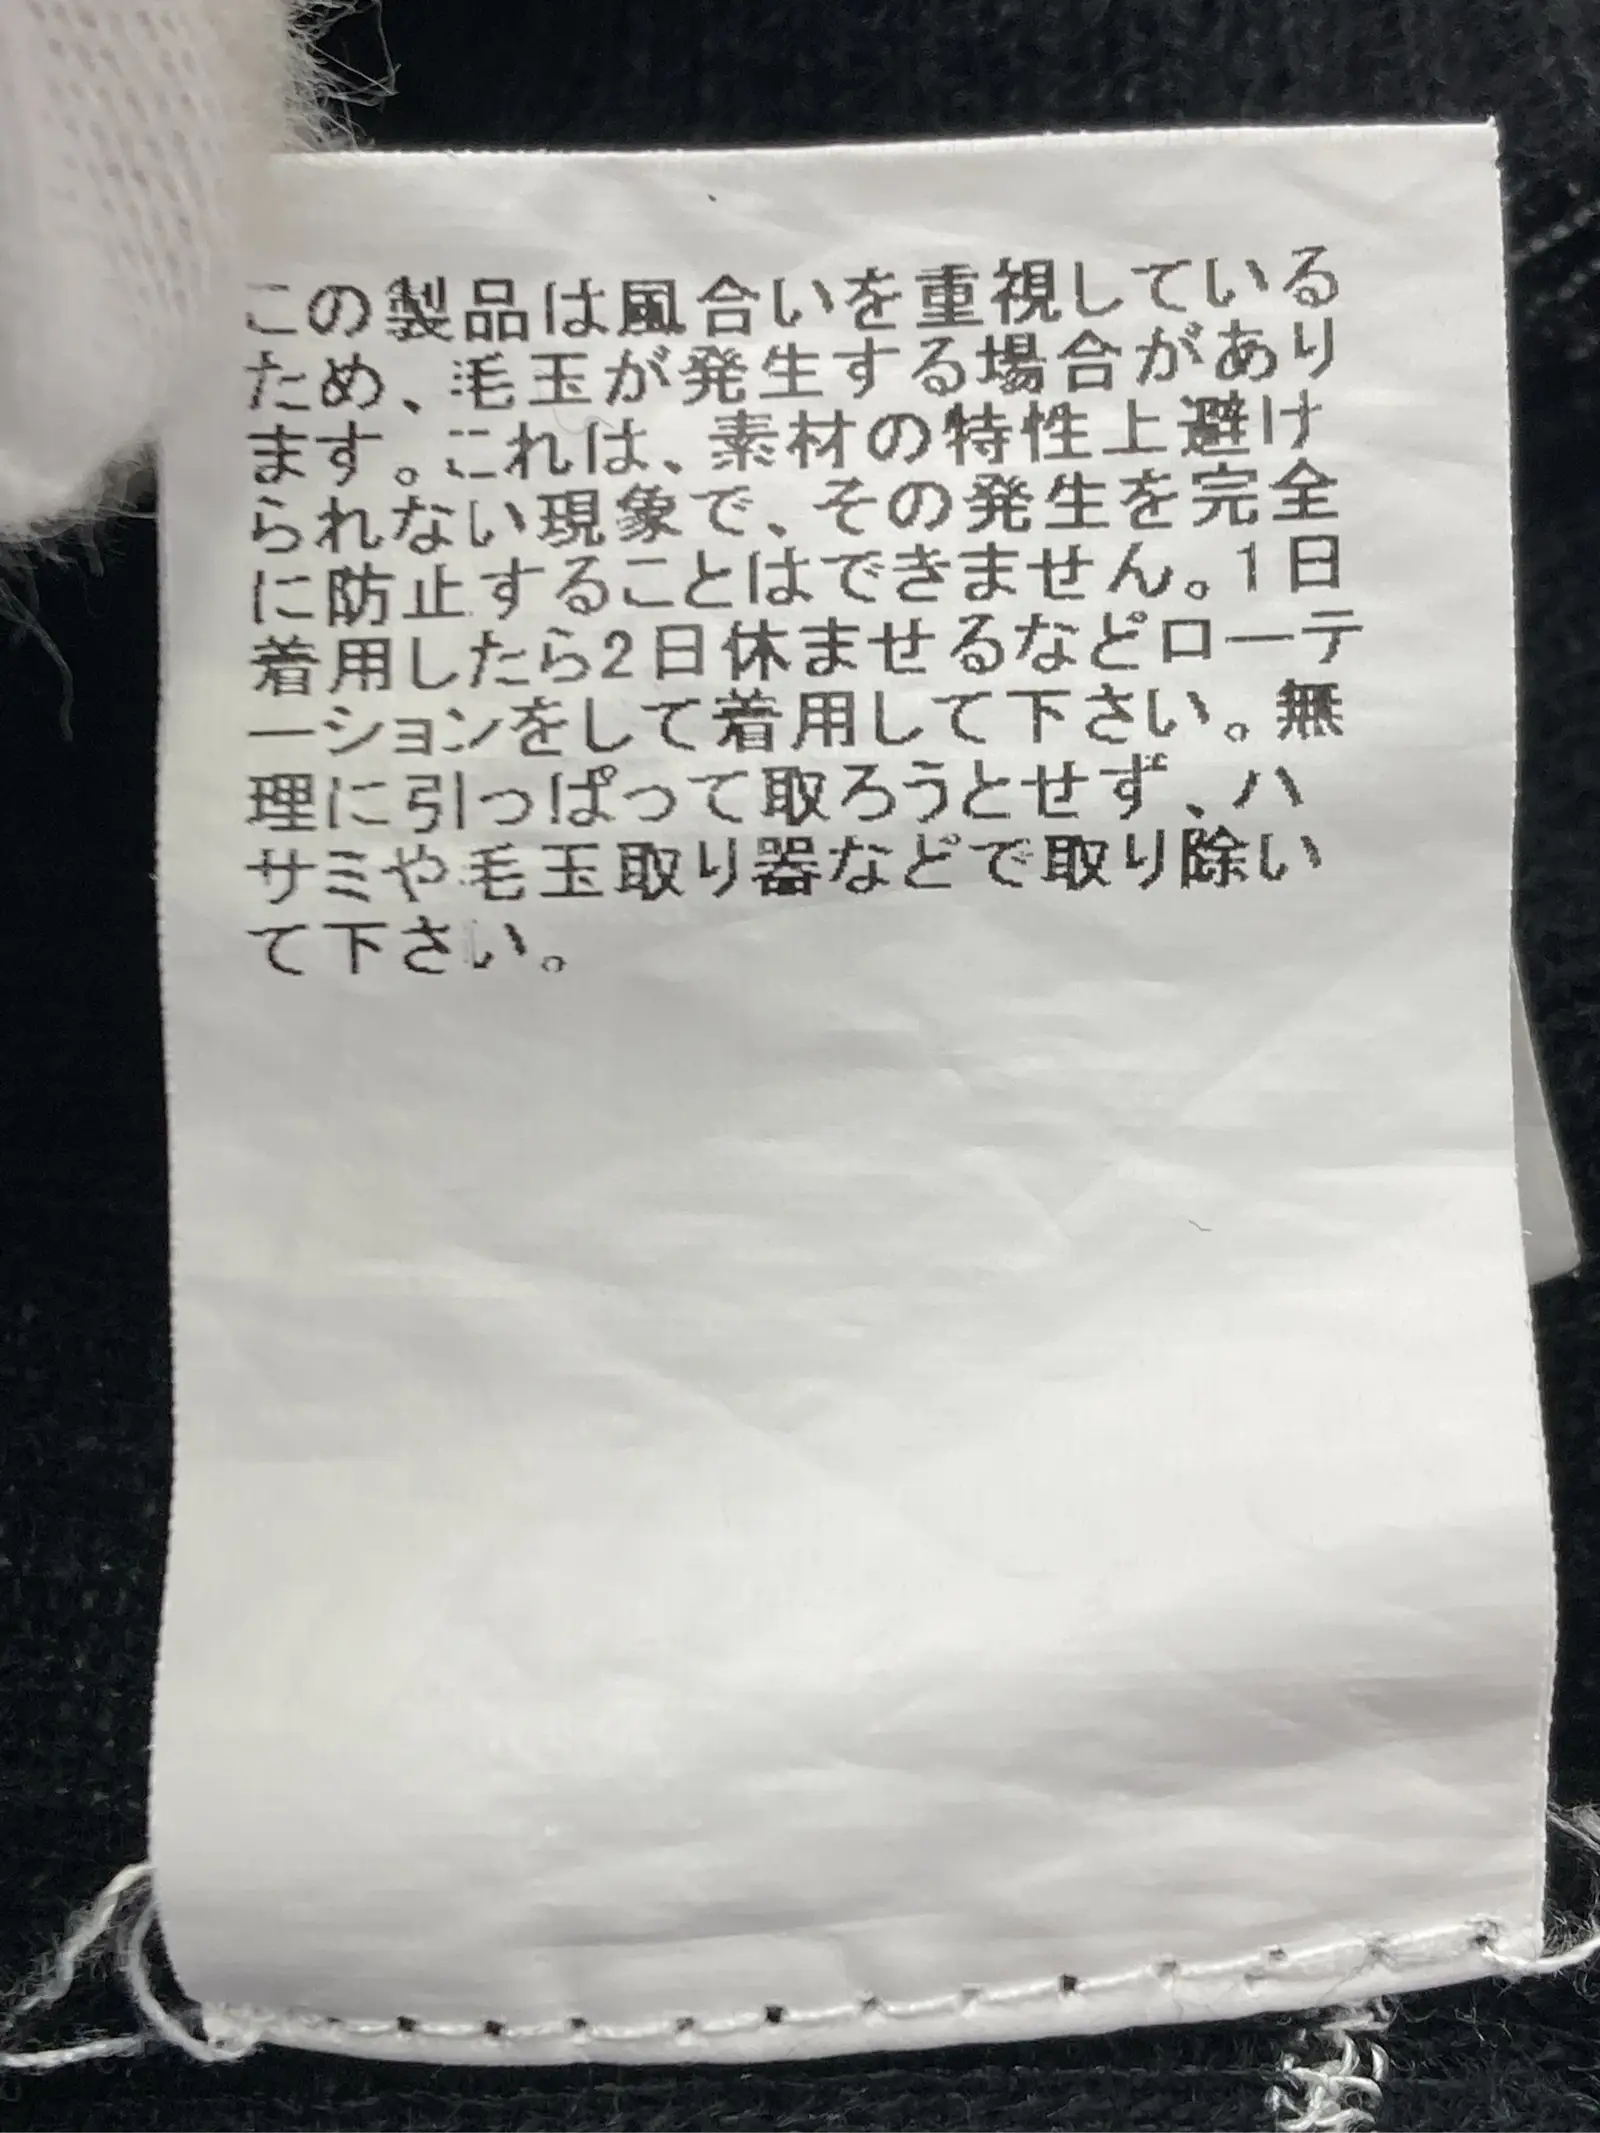 この製品は風合いを重視している
ため、毛玉が発生する場合があり
ます。これは、素材の特性上避け
られない現象で、その発生を完全
に防止することはできません。1日
着用したら2日休ませるなどローテ
ーションをして着用して下さい。無
理に引っぱって取ろうとせず、ハ
サミや毛玉取り器などで取り除い
て下さい。